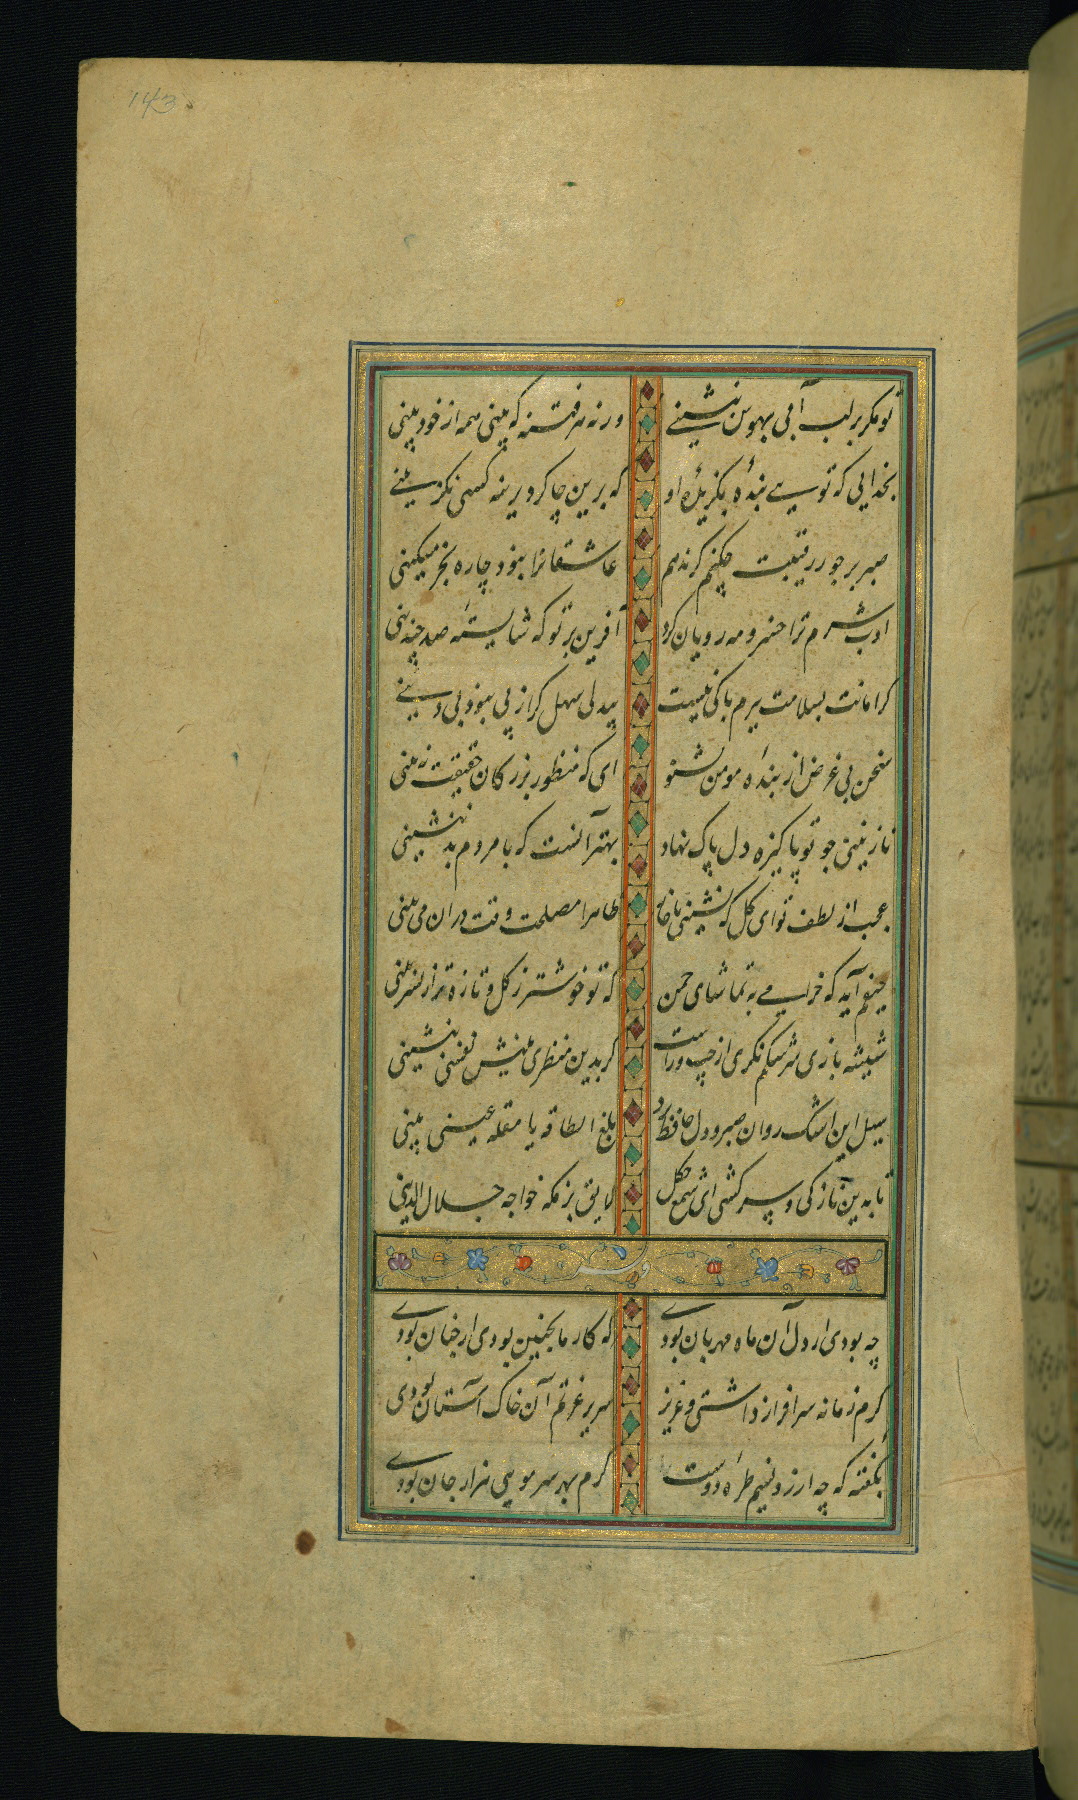 143
تو مکر بر لب آبی بهوس بنشینی ورنه هر فتنه که بینی همه از خود بینی
بخدایی که تویی بندهٔ بکزیدهٔ او که برین چاکر دیرینه کسی نکزینی
صبر بر جور رقیبت چکنم کر نکنم عاشقانرا نبود چاره بجز مسکینی
ادب شرم ترا خسرو مه رویان کرد آفرین بر تو که شایستهٔ صد چندینی
کر امانت بسلامت ببرم باکی نیست بیدلی سهل کر از پی نبود بی دینی
سخن بی غرض از بندهٔ مومن بشنو ای که منظور بزرکان حقیقت بینی
نازنینی جو تو پاکیزه دل پاک نهاد بهتر آنست که با مردم بد ننشینی
عجب از لطف تو ای کل که نشینی با خار ظاهرا مصلحت وقت دران می بینی
حیفم آید که خرامی به تماشای چمن که تو خوشتر ز کل و تازه تر از نسرینی
شیشه بازی سرشکم نکری از چپ و راست کر بدین منظری بینش نفسی بنشینی
سیل این اشک روان صبر و دل حافظ برد بلغ الطاقه یا مقله عینی بینی
تا بدین نازکی و سرکشی ای شمع چکل لایق بزمکه خواجه جلال الدینی
وله
چه بودی ار دل آن ماه مهربان بودی که کار ما نچنین بودی ار چنان بودی
کرم زمانه سرافراز داشتی و عزیز سریر عزتم آن خاک آستان بودی
بکفتمی که چه ارزد نسیم طرهٔ دوست کرم بهر سر مویی هزار جان بودی